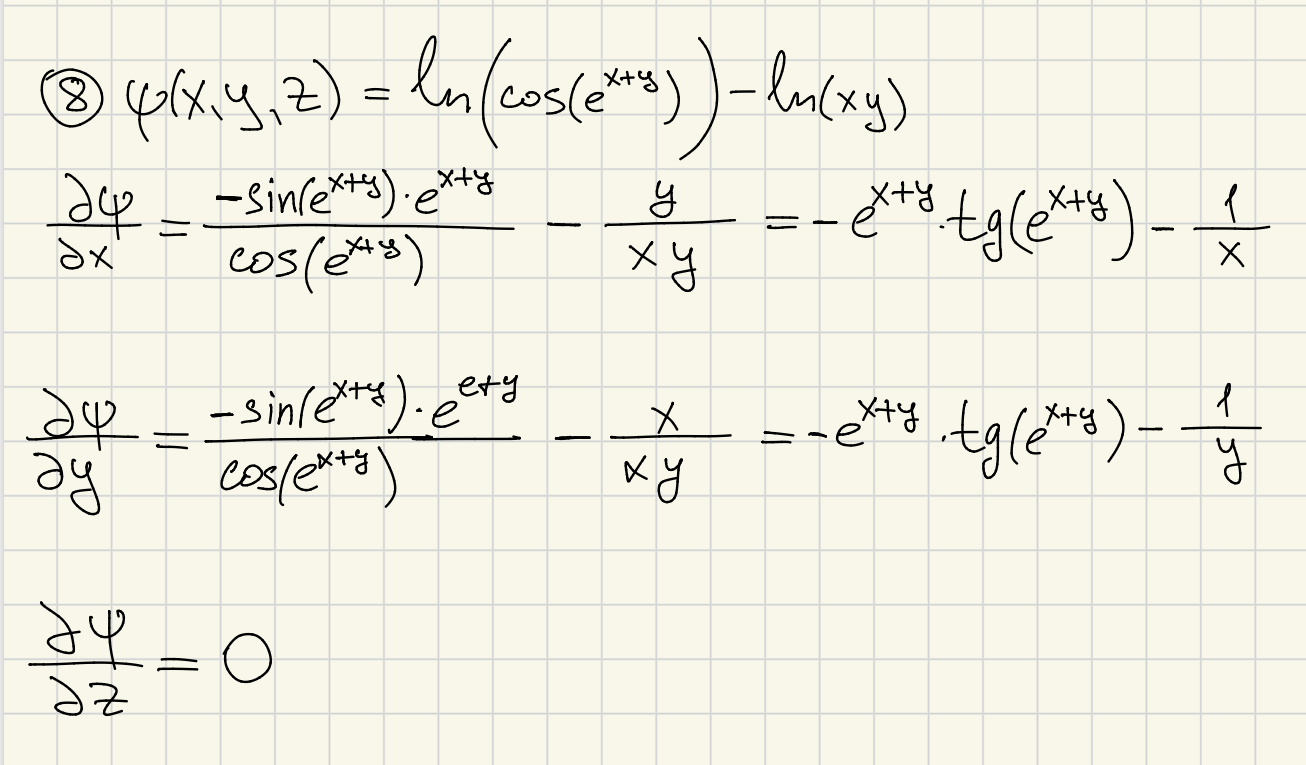 ⑧ φ(x,y,z) = ln(cos(e^{x+y})) - ln(xy)
∂φ/∂x = (-sin(e^{x+y})·e^{x+y})/(cos(e^{x+y})) - y/(xy) = -e^{x+y}·tg(e^{x+y}) - 1/x
∂φ/∂y = (-sin(e^{x+y})·e^{e+y})/(cos(e^{x+y})) - x/(xy) = -e^{x+y}·tg(e^{x+y}) - 1/y
∂φ/∂z = 0